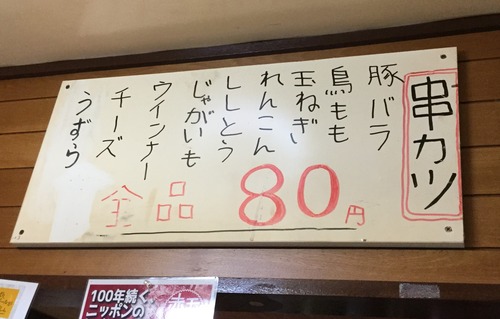 串カツ
豚バラ
鳥もも
玉ねぎ
れんこん
ししとう
じゃがいも
ウインナー
チーズ
うずら
全品 80円
100年続く
ニッポンの